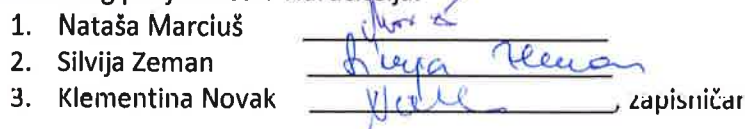 1. Nataša Marciuš
2. Silvija Zeman Silvija Zeman
3. Klementina Novak , zapisničar